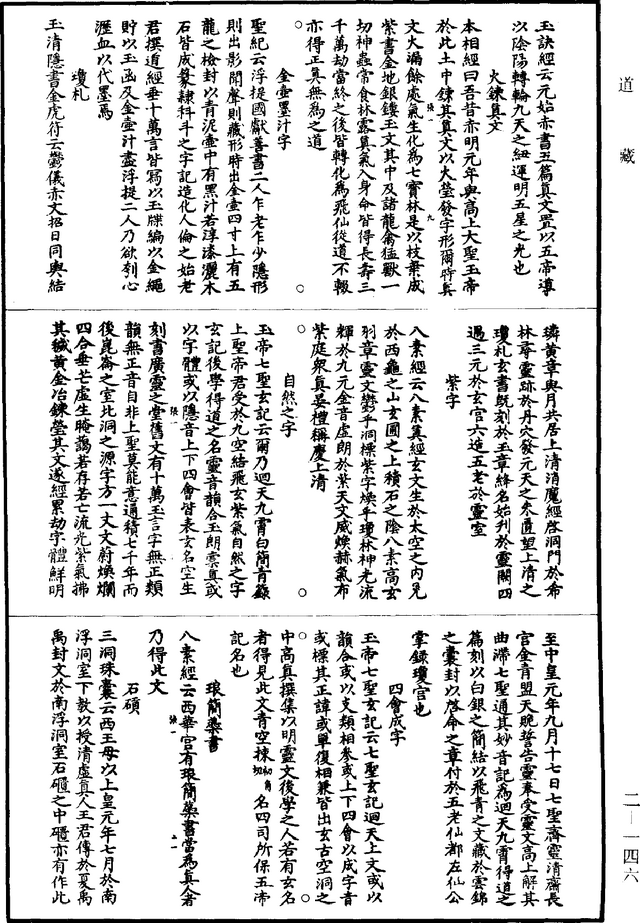 道藏
玉訣經云元始赤書五篇真文置以五帝導
以陰陽轉輪九天之紐運明五星之光也
火鍊真文
本相經曰吾昔赤明元年與高上大聖玉帝
於此土中鍊其真文以火瑩發字形爾時真
文火漏餘處氣生化為七寶林是以枝葉成
紫書金地銀鏤玉文其中及諸龍禽猛獸一
切神蟲常食林露真氣入身命皆得長壽三
千萬劫當終之後皆轉化為飛仙從道不輟
亦得正真無為之道
金壺墨汁字
聖紀云浮提國獻善書二人乍老乍少隱形
則出影聞聲則藏形時出金壺四寸上有五
龍之檢封以青泥壺中有黑汁若淳漆灑木
石皆成篆隸科斗之字記造化人倫之始老
君撰道經垂十萬言皆寫以玉牒編以金繩
貯以玉函及金壺汁盡浮提二人乃欲刳心
瀝血以代墨焉
瓊札
玉清隱書金虎符云鬱儀赤文招日同輿結
璘黃章與月共居上清消魔經啓洞門於希
林尋靈跡於丹穴發元天之朱匱望上清之
瓊札玄書既刻於玉章絳名始刋於靈闕四
遇三元於玄宫六造五老於靈室
紫字
八素經云八素真經玄文生於太空之内見
於西龜之山玄圃之上積石之陰八素高玄
羽章靈文鬱乎洞標紫字煥乎瓊林神光流
輝於九元金音虛朗於紫天文威煥赫氣布
紫庭衆真晏禮稱慶上清
自然之字
玉帝七聖玄記云爾乃廻天九霄白簡青籙
上聖帝君受於九空結飛玄紫氣自然之字
玄記後學得道之名靈音韻合玉朗雲真或
以字體或以隱音上下四會皆表玄名空生
刻書廣靈之堂舊文有十萬玉言字無正類
韻無正音自非上聖莫能意通積七千年而
後崑崙之室北洞之源字方一丈文蔚煥爛
四合垂芒虛生晻藹若存若亡流光紫氣拂
其穢黃金冶鍊瑩其文遂經累劫字體鮮明
至中皇元年九月十七日七聖齋靈清齋長
宮金青盟天晚誓告靈奉受靈文高上解其
曲滯七聖通其妙音記為迴天九霄得道之
篇刻以白銀之簡結以飛青之文藏於雲錦
之囊封以啓命之章付於五老仙都左仙公
掌錄瓊宮也
四會成字
玉帝七聖玄記云七聖玄記迴天上文或以
韻合或以支類相參或上下四會以成字音
或標其正諱或單復相兼皆出玄古空洞之
中高真撰集以明靈文後學之人若有玄名
者得見此文青空棟名四司所保五帝
記名也
琅簡蘂書
八素經云西華宮有琅簡蘂書當為真人者
乃得此文
石磧
三洞珠囊云西王母以上皇元年七月於南
浮洞室下教以授清虛真人王君傳於夏禹
禹封文於南浮洞室石磧之中磧亦有作此
二—一四六